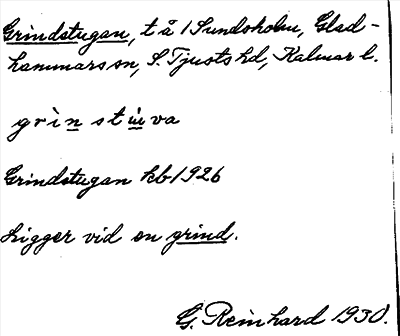 Grindstugan, t å 1 Sundsholm, Glad-
hammars sn, S. Tjusts hd, Kalmar l.
grìnstùva
Grindstugan kb 1926
Ligger vid en grind.
G. Reinhard 1930.